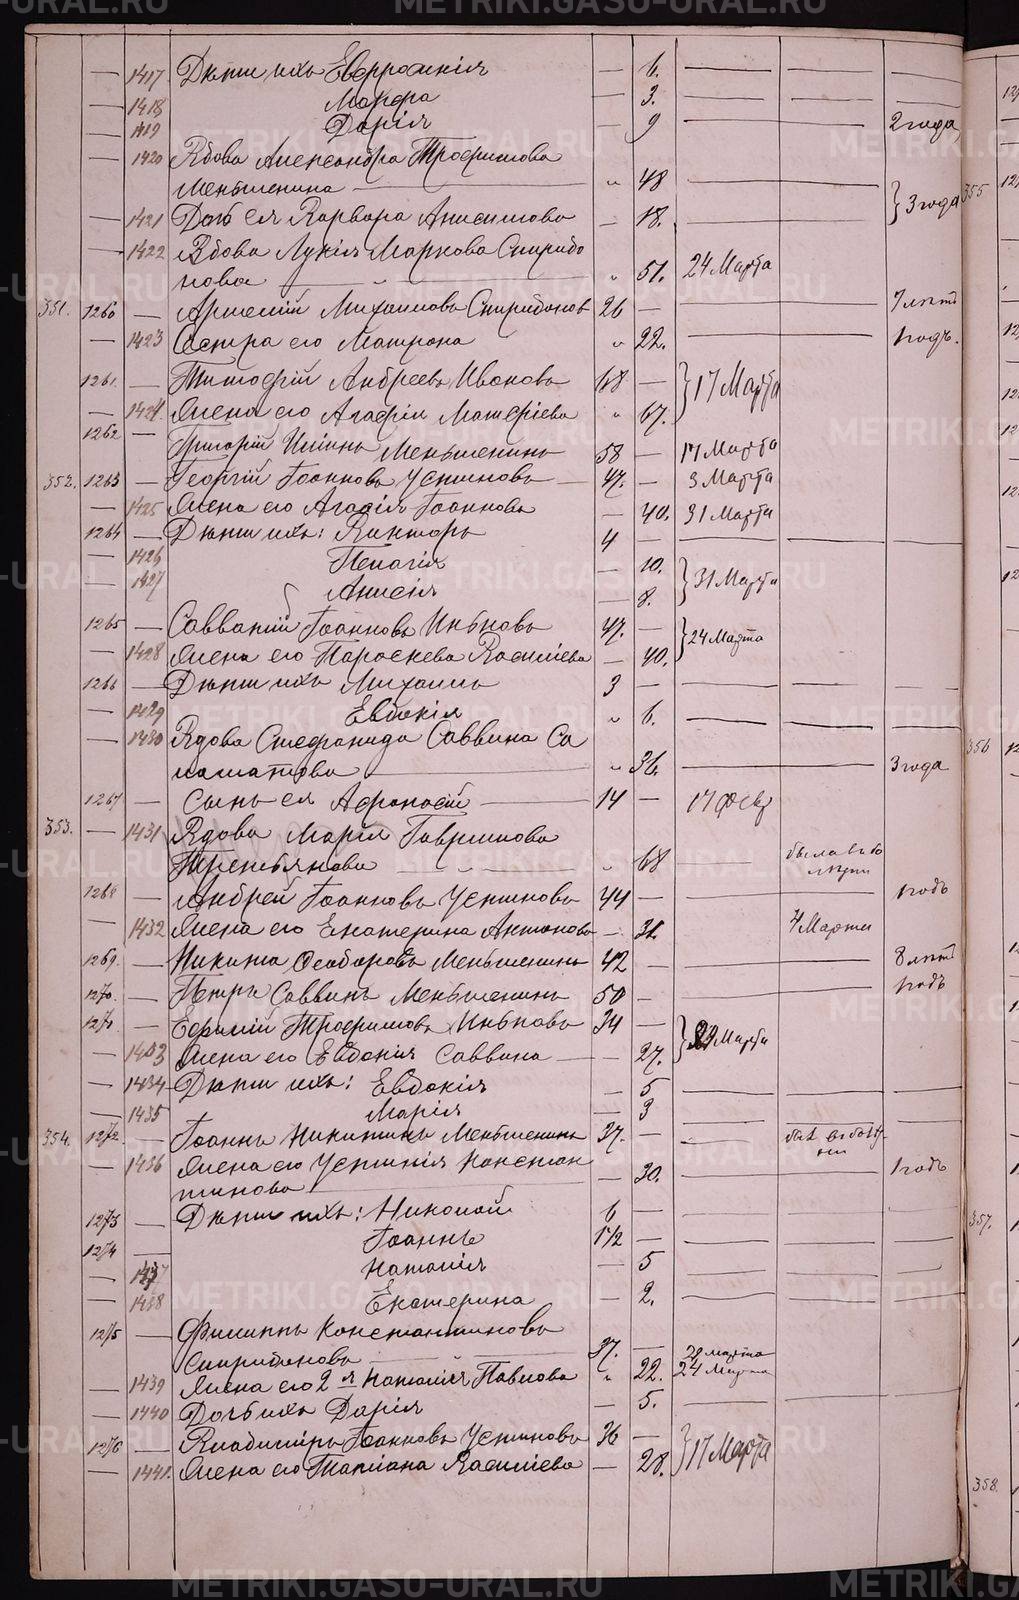 METRIKI.GASO-URAL.RU
1417 Дѣти ихъ Евфросинія — 6.
1418 Марфа — 3.
1419 Дарія — 9 2 года
1420 Вдова Александра Трофимова
Меньшенина — „ 48
} 3 года
1421 Дочь ея Варвара Анисимова — 18.
1422 Вдова Лукія Маркова Спиридо
нова „ 51. 24 Марта
351. 1260 — Артемій Михаиловъ Спиридоновъ 26 — 7 лѣтъ
1423 Сестра его Матрона „ 22. 1 годъ.
1261. — Тимофей Андреевъ Ивановъ 68 — } 17 Марта
1424. Жена его Агафія Матфіева „ 67.
1262 — Григорій Меньшенинъ 58 — 17 Марта
352. 1263 — Георгій Іоанновъ Устиновъ 47. — 3 Марта
1425 Жена его Агафія Іоаннова — 40. 31 Марта
1264 — Дѣти ихъ: Викторъ 4 —
1426 Пелагія — 10. } 31 Марта
1427 Анисія — 8.
1265 — Савватій Іоанновъ 47. — } 24 Марта
1428 Жена его Параскева Василіева — 40.
1266 — Дѣти ихъ Михаилъ 3 —
1429 Евдокія „ 6.
1430 Вдова Стефанида Саввина Са
ламатова „ 36. 3 года
1267 — Сынъ ея Афанасій 14 — 17 Фев
353. — 1431 Вдова Марія Гавриилова
Третьякова „ 68
1268 — Андрей Іоанновъ Устиновъ 44 — 1 годъ
1432 Жена его Екатерина Антонова — 31. 4 Марта
1269. — Никита Ѳеодоровъ Меньшенинъ 42 — 8 лѣтъ
1270. — Петръ Саввинъ Меньшенинъ 50 — 1 годъ
1271 — Ефимій Трофимовъ 34 — } Марта
1433 Жена его Евдокія Саввина — 27.
1434 Дѣти ихъ: Евдокія — 5
1435 Марія — 3
354. 1272. — Іоаннъ Никитинъ Меньшенинъ 37. —
1436 Жена его Устинія Констан
тинова — 30. 1 годъ
1273 — Дѣти ихъ: Николай 6 —
1274 — Іоаннъ 1 1/2 —
1437 Наталія — 5
1438 Екатерина — 2.
1275 — Филиппъ Константиновъ
Спиридоновъ 37. — 29 марта
1439 Жена его 2я Наталія Павлова „ 22. 24 Марта
1440 Дочь ихъ Дарія — 5.
1276 — Владиміръ Іоанновъ Устиновъ 36 — } 17 Марта
1441. Жена его Татіана Василіева — 28.
355
356
357.
358.